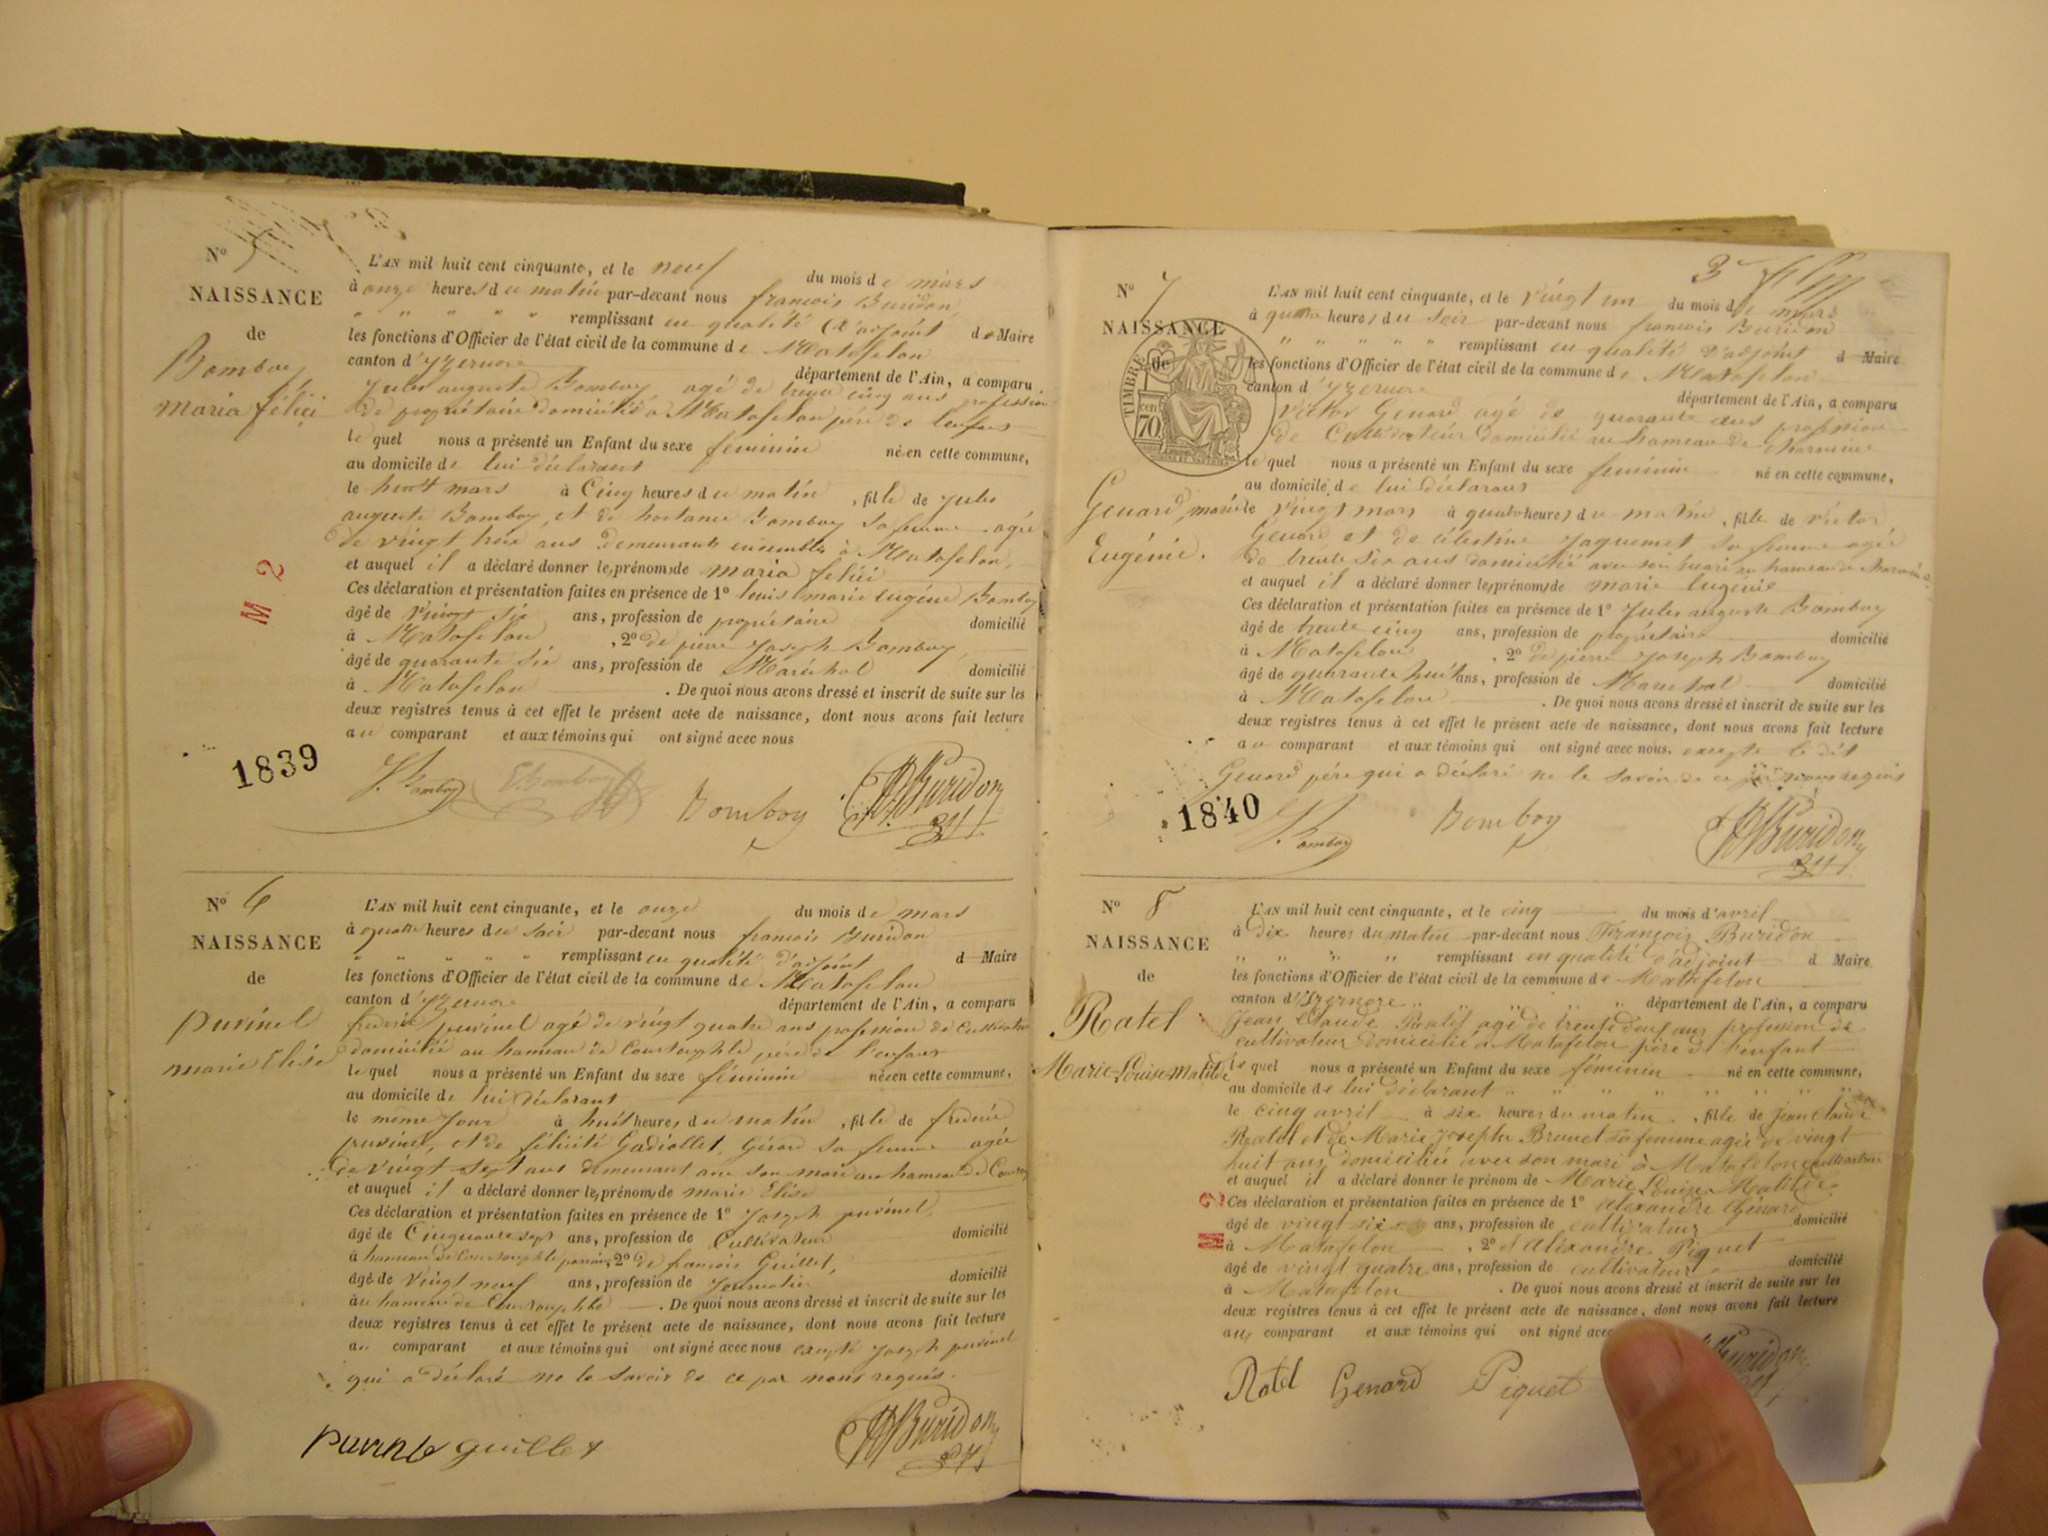 N° 5
NAISSANCE
de
Bomboy
maria félici
L'AN mil huit cent cinquante, et le neuf du mois de mars
à onze heures du matin par-devant nous françois Buridon
" " " " " remplissant en qualité d'adjoint d Maire
les fonctions d'Officier de l'état civil de la commune de Matafelon
canton d'yzernore département de l'Ain, a comparu
Jules auguste Bomboy agé de trente cinq ans profession
de propriétaire domicilié à Matafelon père de lenfant
le quel nous a présenté un Enfant du sexe féminin né en cette commune,
au domicile de lui déclarant
le huit mars à Cinq heures du matin, fille de jules
auguste Bomboy, et de hortance Bomboy sa femme agée
de vingt trois ans demeurants ensembles à Matafelon,
et auquel il a déclaré donner les prénoms de maria felici
Ces déclaration et présentation faites en présence de 1° louis marie eugène Bomboy
âgé de vingt six ans, profession de propriétaire domicilié
à Matafelon, 2° de pierre Joseph Bomboy,
âgé de quarante six ans, profession de Maréchal domicilié
à Matafelon. De quoi nous avons dressé et inscrit de suite sur les
deux registres tenus à cet effet le présent acte de naissance, dont nous avons fait lecture
au comparant et aux témoins qui ont signé avec nous
M 2
1839
J. Bomboy EBomboy Bomboy Buridon
N° 6
NAISSANCE
de
purinel
marie Elise
L'AN mil huit cent cinquante, et le onze du mois de mars
à quatre heures du soir par-devant nous françois Buridon
" " " " " remplissant en qualité d'adjoint d Maire
les fonctions d'Officier de l'état civil de la commune de Matafelon
canton d'yzernore département de l'Ain, a comparu
frederic purinel agé de vingt quatre ans profession de Cultivateur
domicilié au hameau de père de l'enfant
le quel nous a présenté un Enfant du sexe féminin né en cette commune,
au domicile de lui déclarant
le même jour à huit heures du matin, fille de frederic
purinel, et de félicité Gadiollet, Gérard sa femme agée
de vingt sept ans demeurant avec son mari au hameau de
et auquel il a déclaré donner les prénoms de marie Elise
Ces déclaration et présentation faites en présence de 1° Joseph purinel,
âgé de Cinquante sept ans, profession de Cultivateur domicilié
à hameau de 2° de françois Guillet,
âgé de vingt neuf ans, profession de Journalier domicilié
à u hameau de . De quoi nous avons dressé et inscrit de suite sur les
deux registres tenus à cet effet le présent acte de naissance, dont nous avons fait lecture
au comparant et aux témoins qui ont signé avec nous excepté Joseph purinel
qui a déclaré ne le savoir de ce par nous requis.
guillet Buridon
N° 7
NAISSANCE
de
TIMBRE
cen 70
Genard, marie
Eugénie.
L'AN mil huit cent cinquante, et le vingt un du mois de mars
à quatre heures du soir par-devant nous françois Buridon
" " " " " remplissant en qualité d'adjoint d Maire
les fonctions d'Officier de l'état civil de la commune de Matafelon
canton d'yzernore département de l'Ain, a comparu
victor Genard agé de quarante ans profession
de Cultivateur domicilié au hameau de
le quel nous a présenté un Enfant du sexe feminin né en cette commune,
au domicile de lui déclarant
le vingt mars à quatre heures du matin, fille de victor
Genard et de célestine Jaquemet sa femme agée
de trente six ans domiciliée avec son mari au hameau de
et auquel il a déclaré donner les prénoms de marie Eugénie
Ces déclaration et présentation faites en présence de 1° Jules auguste Bomboy
âgé de trente cinq ans, profession de propriétaire domicilié
à Matafelon, 2° de pierre Joseph Bomboy
âgé de quarante huit ans, profession de Maréchal domicilié
à Matafelon. De quoi nous avons dressé et inscrit de suite sur les
deux registres tenus à cet effet le présent acte de naissance, dont nous avons fait lecture
au comparant et aux témoins qui ont signé avec nous. excepté le dit
Genard père qui a déclaré ne le savoir de ce par nous requis
1840
J. Bomboy Bomboy Buridon
N° 8
NAISSANCE
de
Ratel
Marie-Louise-Matilde
L'AN mil huit cent cinquante, et le cinq du mois d'avril
à dix heures du matin par-devant nous François Buridon
" " " " remplissant en qualité d'adjoint d Maire
les fonctions d'Officier de l'état civil de la commune de Matafelon
canton d'Izernore département de l'Ain, a comparu
Jean Claude Ratel agé de trente deux ans profession de
cultivateur domicilié à Matafelon père de l'enfant
le quel nous a présenté un Enfant du sexe féminin né en cette commune,
au domicile de lui déclarant
le cinq avril à six heures du matin, fille de Jean Claude
Ratel et de Marie Josephe Brunet sa femme agée de vingt
huit ans domiciliée avec son mari à Matafelon cultivateur
et auquel il a déclaré donner le prénom de Marie Louise Matilde.
Ces déclaration et présentation faites en présence de 1° alexandre Génard
âgé de vingt six ans, profession de cultivateur domicilié
à Matafelon, 2° d'Alexandre Piquet
âgé de vingt quatre ans, profession de cultivateur domicilié
à Matafelon. De quoi nous avons dressé et inscrit de suite sur les
deux registres tenus à cet effet le présent acte de naissance, dont nous avons fait lecture
au comparant et aux témoins qui ont signé avec
Ratel Genard Piquet Buridon